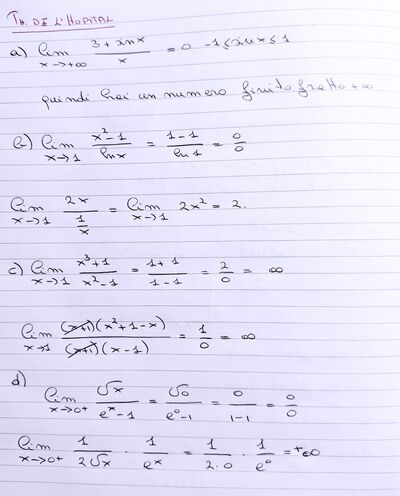 TH. DE L'HOPITAL
a) lim x→+∞ (3+sinx)/x = 0 -1≤sinx≤1
quindi hai un numero finito fratto +∞
b) lim x→1 (x²-1)/(lnx) = (1-1)/(ln1) = 0/0
lim x→1 2x/(1/x) = lim x→1 2x² = 2.
c) lim x→1 (x³+1)/(x²-1) = (1+1)/(1-1) = 2/0 = ∞
lim x→1 ((x+1)(x²+1-x))/((x+1)(x-1)) = 1/0 = ∞
d)
lim x→0⁺ √x/(eˣ-1) = √0/(e⁰-1) = 0/(1-1) = 0/0
lim x→0⁺ 1/(2√x) · 1/eˣ = 1/(2·0) · 1/e⁰ = +∞